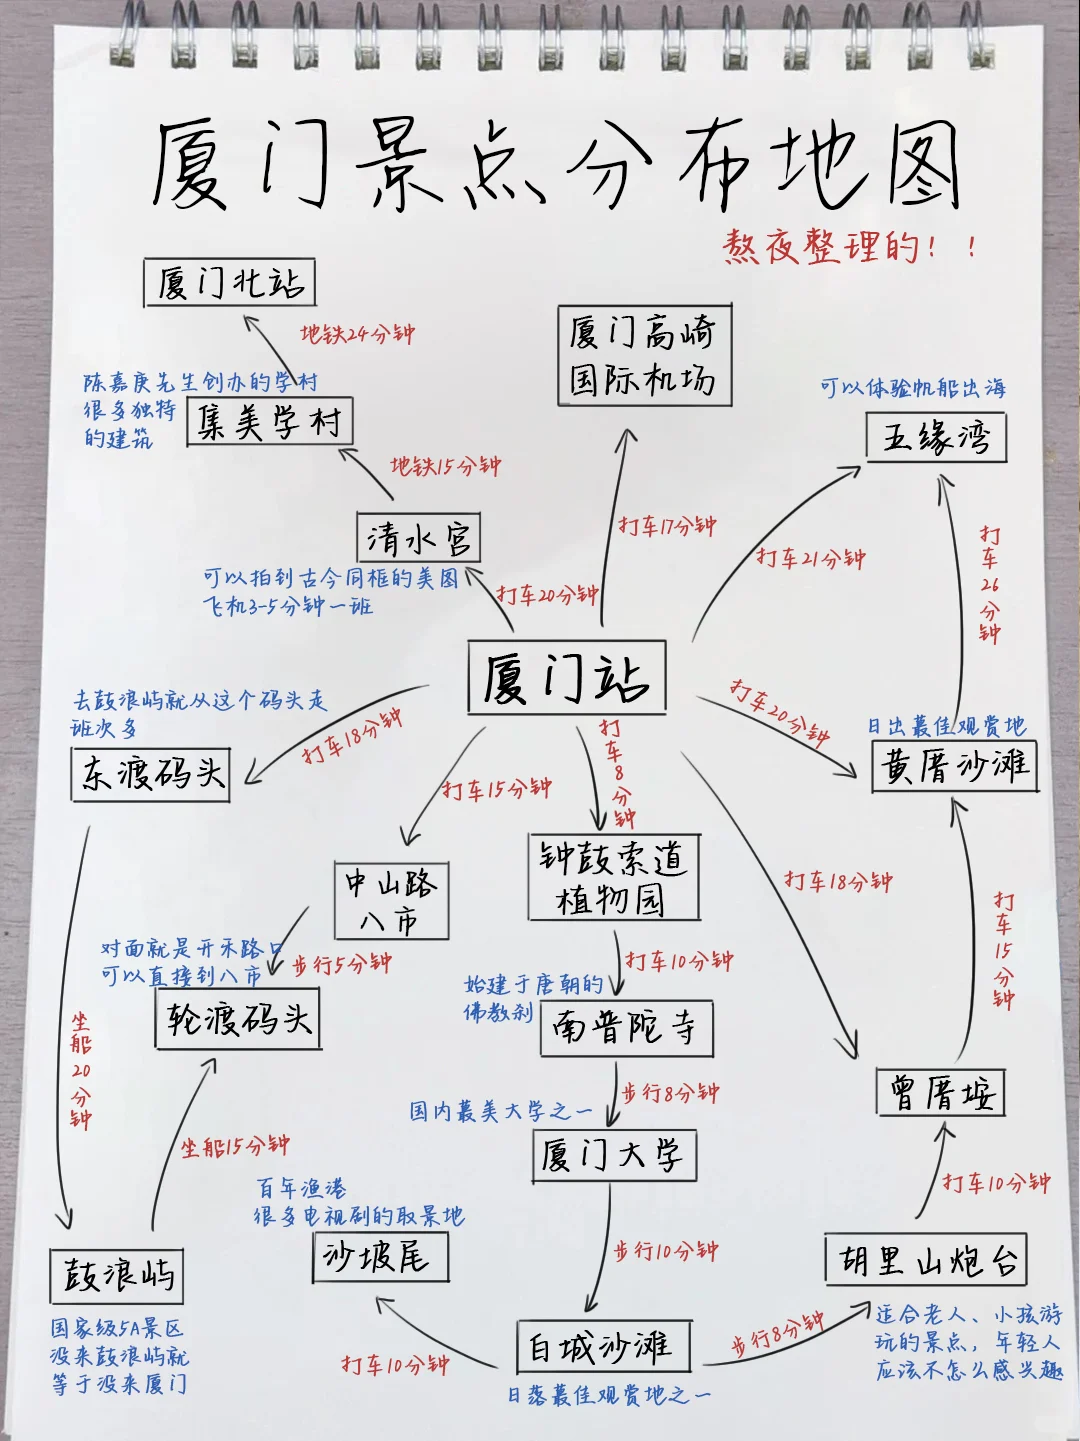 厦门景点分布地图
熬夜整理的！！
厦门北站
地铁24分钟
厦门高崎
国际机场
陈嘉庚先生创办的学村
很多独特
的建筑
集美学村
可以体验帆船出海
五缘湾
地铁15分钟
清水宫
可以拍到古今同框的美图
飞机3-5分钟一班
打车20分钟
打车17分钟
打车21分钟
打车26分钟
厦门站
去鼓浪屿就从这个码头走
班次多
东渡码头
打车18分钟
打车15分钟
打车8分钟
打车20分钟
日出最佳观赏地
黄厝沙滩
中山路
八市
钟鼓索道
植物园
打车18分钟
打车15分钟
对面就是开禾路口
可以直接到八市
步行5分钟
轮渡码头
打车10分钟
始建于唐朝的
佛教刹
南普陀寺
坐船20分钟
坐船15分钟
步行8分钟
国内最美大学之一
厦门大学
曾厝垵
打车10分钟
百年渔港
很多电视剧的取景地
沙坡尾
步行10分钟
胡里山炮台
鼓浪屿
国家级5A景区
没来鼓浪屿就
等于没来厦门
打车10分钟
白城沙滩
日落最佳观赏地之一
步行8分钟
适合老人、小孩游
玩的景点，年轻人
应该不怎么感兴趣